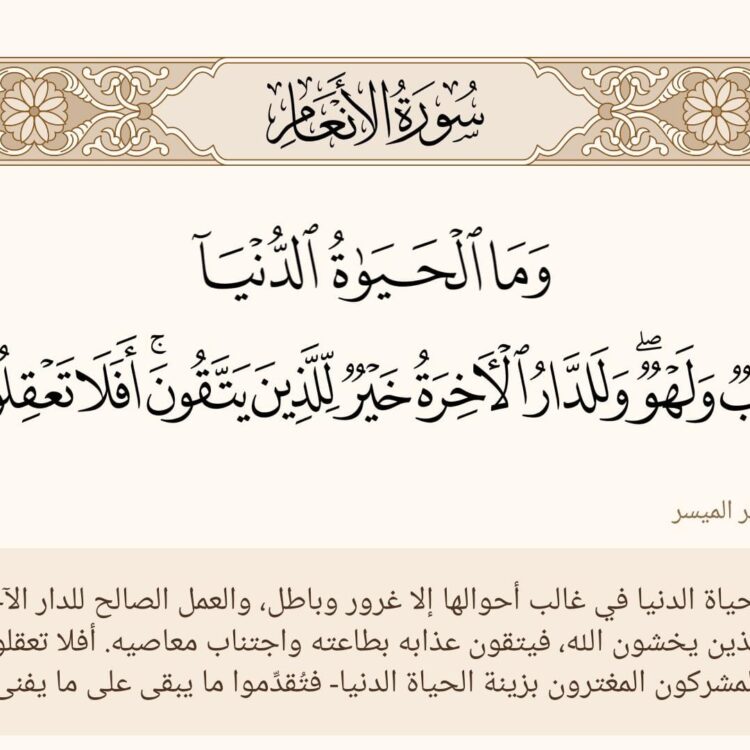 سُورَةُ الأَنْعَامِ
وَمَا ٱلْحَيَوٰةُ ٱلدُّنْيَآ
وَلَهْوٌۖ وَلَلدَّارُ ٱلْأَخِرَةُ خَيْرٌ لِّلَّذِينَ يَتَّقُونَۚ أَفَلَا
الميسر
الدنيا في غالب أحوالها إلا غرور وباطل، والعمل الصالح للدار
يخشون الله، فيتقون عذابه بطاعته واجتناب معاصيه. أفلا
المغترون بزينة الحياة الدنيا- فتُقدِّموا ما يبقى على ما يفنى